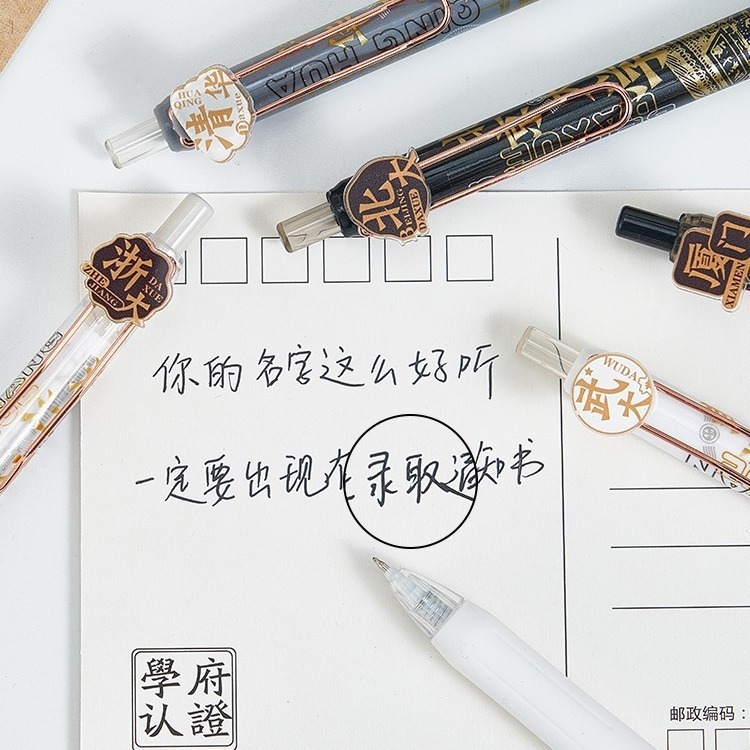 HUA
QING
清华
Daxue
QING HUA
北大
BEIJING
DAXUE
浙大
ZHE
JIANG
DA
XUE
厦门
XIAMEN
WUDA
武大
你的名字这么好听
一定要出现在录取通知书
學府
认證
邮政编码：